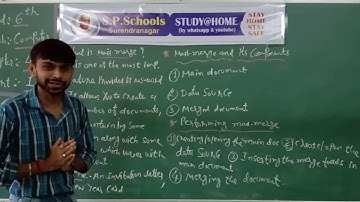 d: 6th
S.P.Schools
Surendranagar
STUDY@HOME
(by whatsapp & youtube)
STAY
HOME
STAY
SAFE
h: Comput
ple: 4
What is mail merge?
is one of the most imp.
feature Provided by ms-word
allows you to create a
number of documents,
containing some
along with some
which varies with
document.
An Invitation letter,
New Year Card
* Mail-merge and Its Components
① Main document
② Data Source
③ Merged document
* Performing mail-merge
① Creating/opening the main doc ② Create/open the
data Source ③ Inserting the merge fields in
main document.
④ Merging the document.